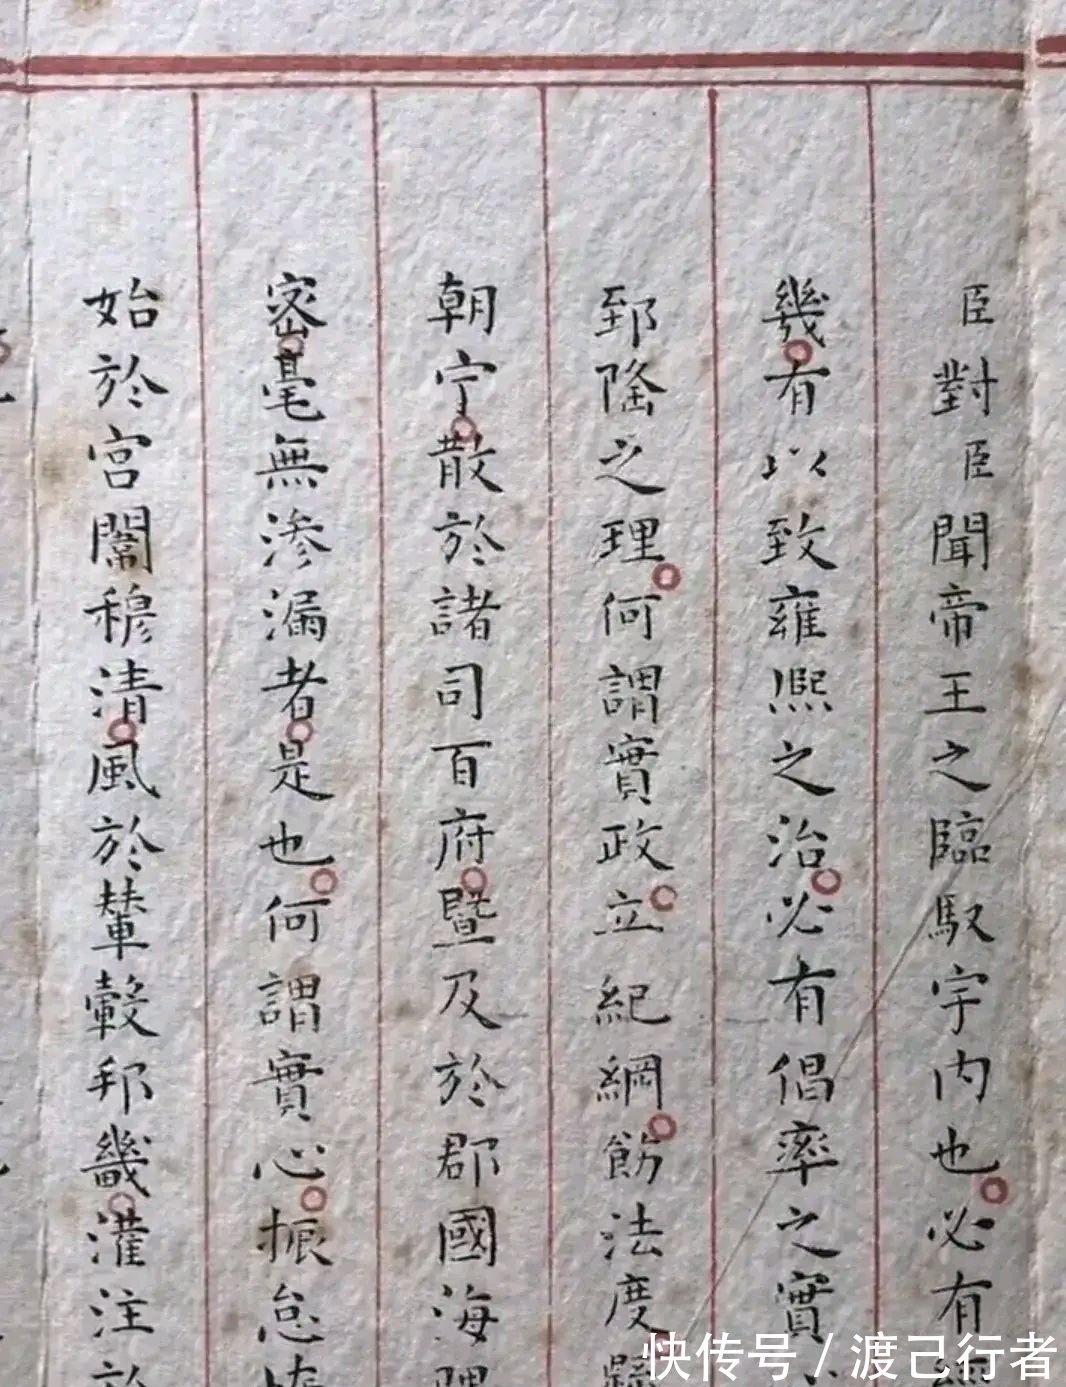 臣對臣聞帝王之臨馭宇内也必有經
幾有以致雍熙之治必有倡率之實
郅隆之理何謂實政立紀綱飭法度
朝宁散於諸司百府暨及於郡國海隅
密毫無渗漏者是也何謂實心振怠
始於宮闈穆清風於輦轂邦畿灌注於
快传号/渡己行者